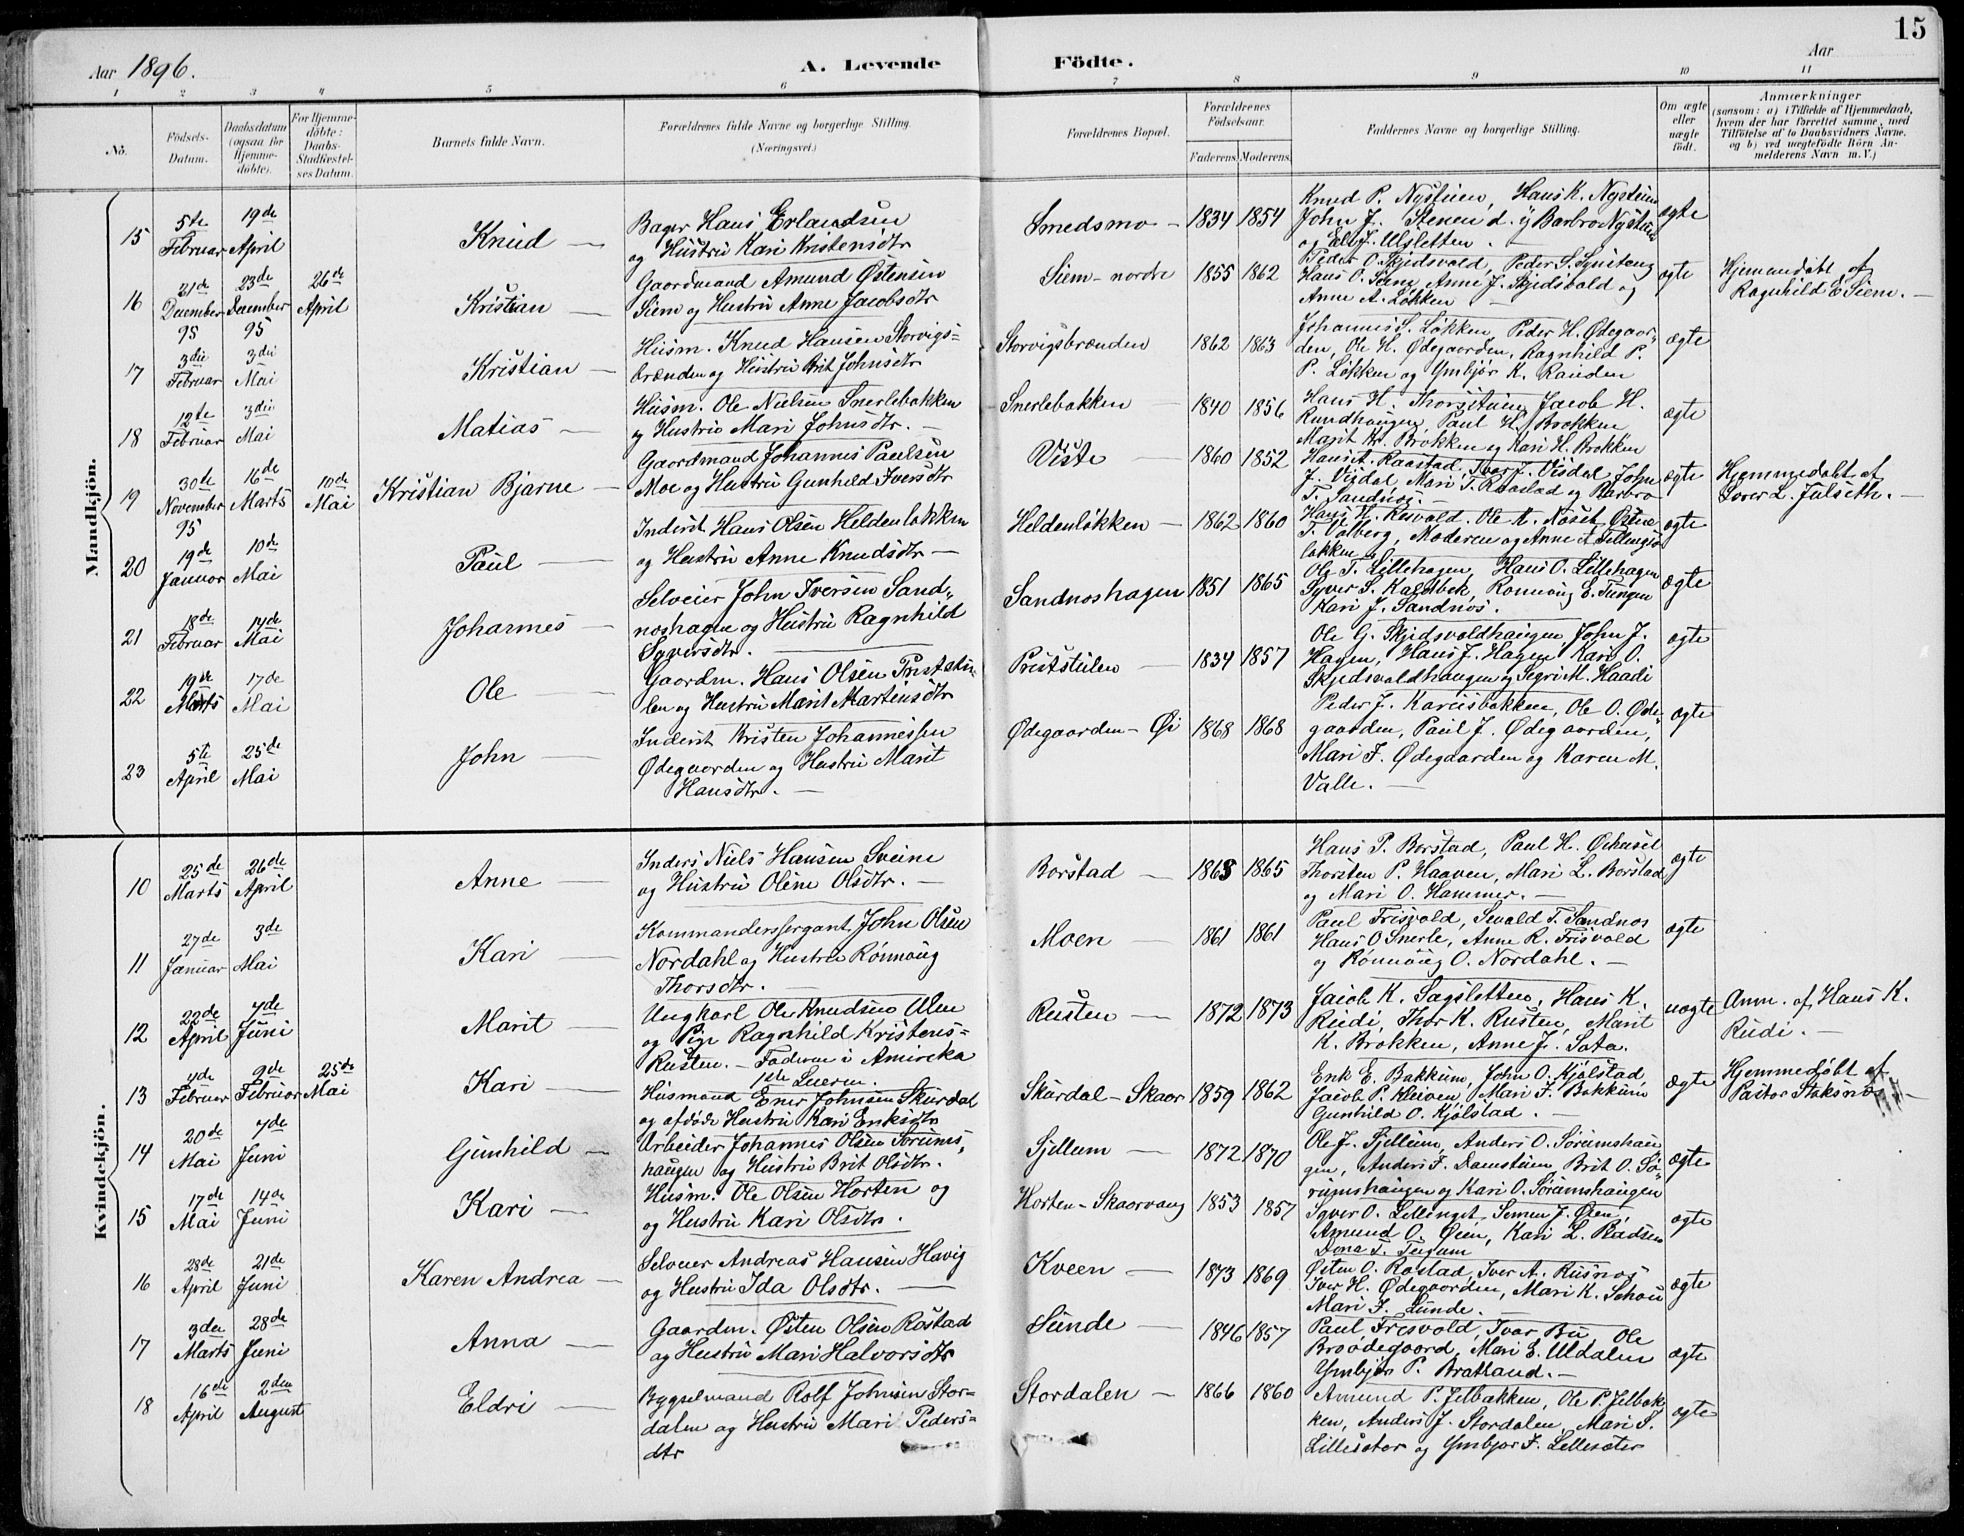 15
Aar 1896.
A. Levende Födte.
Aar
1 2 3 4 5 6 7 8 9 10 11
No.
Födsels-Datum.
Daabsdatum (ogsaa for Hjemmedöbte).
For Hjemmedöbte: Daabs-Stadfæstelses Datum.
Barnets fulde Navn.
Forældrenes fulde Navne og borgerlige Stilling. (Næringsvei.)
Forældrenes Bopæl.
Forældrenes Födselsaar.
Faderens. Moderens.
Faddernes Navne og borgerlige Stilling.
Om ægte eller uægte födt.
Anmærkninger (saasom: a) i Tilfælde af Hjemmedaab, hvem der har forrettet samme, med Tilföielse af to Daabsvidners Navne, og b) ved uægtefödte Börn Anmelderens Navn m.V.)
Mandkjön.
15 5te Februar 19de April Knud —
Bager Hans Erlandsen
og Hustru Kari Kristensdtr
Smedsmo — 1834 1854
Knud P. Nystuen, Hans K. Nystuen
John J. Stenen d. y Barbro Nystuen
og Eli J. Ulsletten. —
ægte
16 21de December 95 23de December 95 26de April Kristian
Gaardmand Amund Østensen
Siem og Hustru Anne Jacobsdtr
Siem - nordre 1855 1862
Peder O. Skjedsvold, Peder S.
Hans O. Anne J. Skjedsvold og
Anne A. Løkken —
ægte
Hjemmedøbt af
Ragnhild Siem. —
17 3die Februar 3die Mai Kristian —
Husm. Knud Hansen Storvigs-
brænden og Hustru Brit Johnsdtr
Storvigsbrænden 1862 1863
Johannes S. Løkken, Peder H. Ødegaar-
den, Ole H. Ødegaarden, Ragnhild P.
P. Løkken og Ymbjør K. Randen
ægte
18 12te Februar 3die Mai Matias —
Husm. Ole Nielsen Snerlebakken
og Hustru Mari Johnsdtr. —
Snerlebakken — 1840 1856
Hans H. Thorstuen, Jacob H.
Rundhaugen, Paul H. Brokken
Marit Kr. Brokken og Kari H. Brokken
ægte
19 30te November 95 16de Marts 10de Mai Kristian Bjarne —
Gaardmand Johannes Paulsen
Moe og Hustru Gunhild Iversdtr
Viste — 1860 1852
Raastad, Iver J. Visdal, John
J. Visdal, Mari T. Raastad og Barbro
T. Sandnes. —
ægte
Hjemmedøbt af
L. Julseth. —
20 19de Januar 10de Mai Paul —
Inderst Hans Olsen Heldenløkken
og Hustru Anne Knudsdtr —
Heldenløkken — 1862 1860
Hans H. Resvold. Ole A. Noset, Østen
T. Valberg, Moderen og Anne
løkken
ægte
21 18de Februar 14de Mai Johannes —
Selveier John Iversen Sand-
noshagen og Hustru Ragnhild
Syversdtr. —
Sandnoshagen 1851 1865
Ole T. Lillehagen, Hans O. Lillehagen
Syver S. Kaldbek, Rønnaug E. Tungen
Kari J. Sandnos.
ægte
22 19de Marts 17de Mai Ole —
Gaardm. Hans Olsen Prestestu-
len og Hustru Marit Martensdtr
Preststulen — 1834 1857
Ole G. Skjedsvoldhaugen, John J.
Hagen, Hans J. Hagen Kari O.
Skjedsvoldhaugen og Segri M. Haadi
ægte
23 5te April 25de Mai John —
Inderst Kristen Johannessen
Ødegaarden og Hustru Marit
Hansdtr. —
Ødegaarden — Øi 1868 1868
Peder J. Karusbakken, Ole O. Øde-
gaarden, Paul J. Ødegaarden,
Mari F. Ødegaarden og Karen M.
Valle. —
ægte
Kvindekjön.
10 25de Marts 26de April Anne —
Inders Niels Hansen Sveine
og Hustru Oline Olsdtr. —
Borstad — 1863 1865
Hans P. Borstad, Paul H.
Thorsten P. Haaven, Mari L. Borstad
og Mari O. Hammer. —
ægte
11 27de Januar 3de Mai Kari —
Kommandersergant John Olsen
Nordahl og Hustru Rønnaug
Thorsdtr. —
Moen — 1861 1861
Paul Frisvold, Sevald T. Sandnos
Hans O Snerle, Anne R. Frisvold
og Rønnaug O. Nordahl. —
ægte
12 22de April 7de Juni Marit —
Ungkarl Ole Knudsen Ulen
og Pige Ragnhild Kristens-
Rusten. — Faderen i Amireka
1ste Leierm.
Rusten — 1872 1873
Jacob K. Sagsletten, Hans K.
Rudi, Thor K. Rusten, Marit
K. Brokken, Anne J. Sata.
uægte
Anm. af Hans K.
Rudi. —
13 4de Februar 9de Februar 25de Mai Kari —
Husmand Ener Johnsen Skardal
og afdøde Hustru Kari Eriksdtr
Skardal - Skaar 1859 1862
Erik E. Bakkum, John O. Kjølstad,
Jacob P. Kleiven, Mari F. Bakkum
Gunhild O. Kjølstad. —
ægte
Hjemmedøbt af
Pastor
14 20de Mai 7de Juni Gunhild —
Arbeider Johannes Olsen Sørums-
haugen og Hustru Brit Olsdtr.
Sjellum — 1872 1870
Ole J. Sjellum, Anders O. Sørumshau
gen, Anders F. Damstuen, Brit O. Sø-
rumshaugen og Kari O. Sørumshaugen
ægte
15 17de Mai 14de Juni Kari —
Husm. Ole Olsen Horten og
og Hustru Kari Olsdtr.
Horten - Skaarvang 1853 1857
Syver O. Simen J. Øien,
Amund O. Øien, Kari L. Pladsen
ægte
16 28de April 21de Juni Karen Andrea —
Selveier Andreas Hansen Havig
og Hustru Ida Olsdtr. —
Kveen — 1873 1869
Østen O. Rostad, Iver A. Rusnos
Iver H. Ødegaarden, Mari K. Schou
Mari F. Sunde. —
ægte
17 3die Marts 28de Juni Anna —
Gaardm. Østen Olsen Rostad
og Hustru Mari Halvorsdtr
Sunde — 1846 1857
Paul Frisvold, Ivar Bu, Ole
Mari E. Uldalen
Ymbjør P. Bratland. —
ægte
18 16de April 2den August Eldri —
Bygselmand Rolf Johnsen Stor-
dalen og Hustru Mari Peders-
dtr
Stordalen — 1866 1860
Amund P. Jelbakken, Ole P. Jelbak
ken, Anders J. Stordalen, Mari S.
Lillesæter og Ymbjør F. Lillesæter
ægte